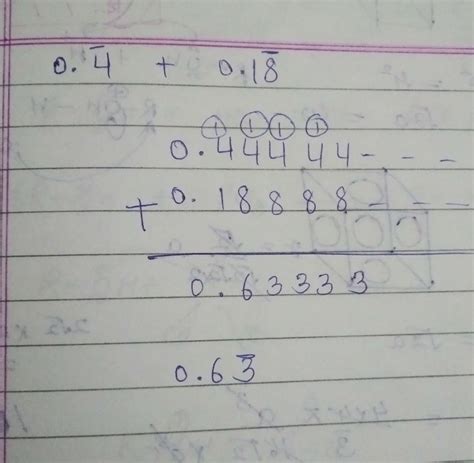 0.4̄ + 0.18̄
1 1 1 1
0.44444- - -
+ 0.18888- - -
0.63333
0.63̄